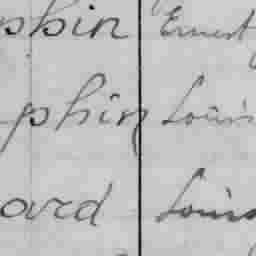 phin Ernest
phin Louis
ard Louis